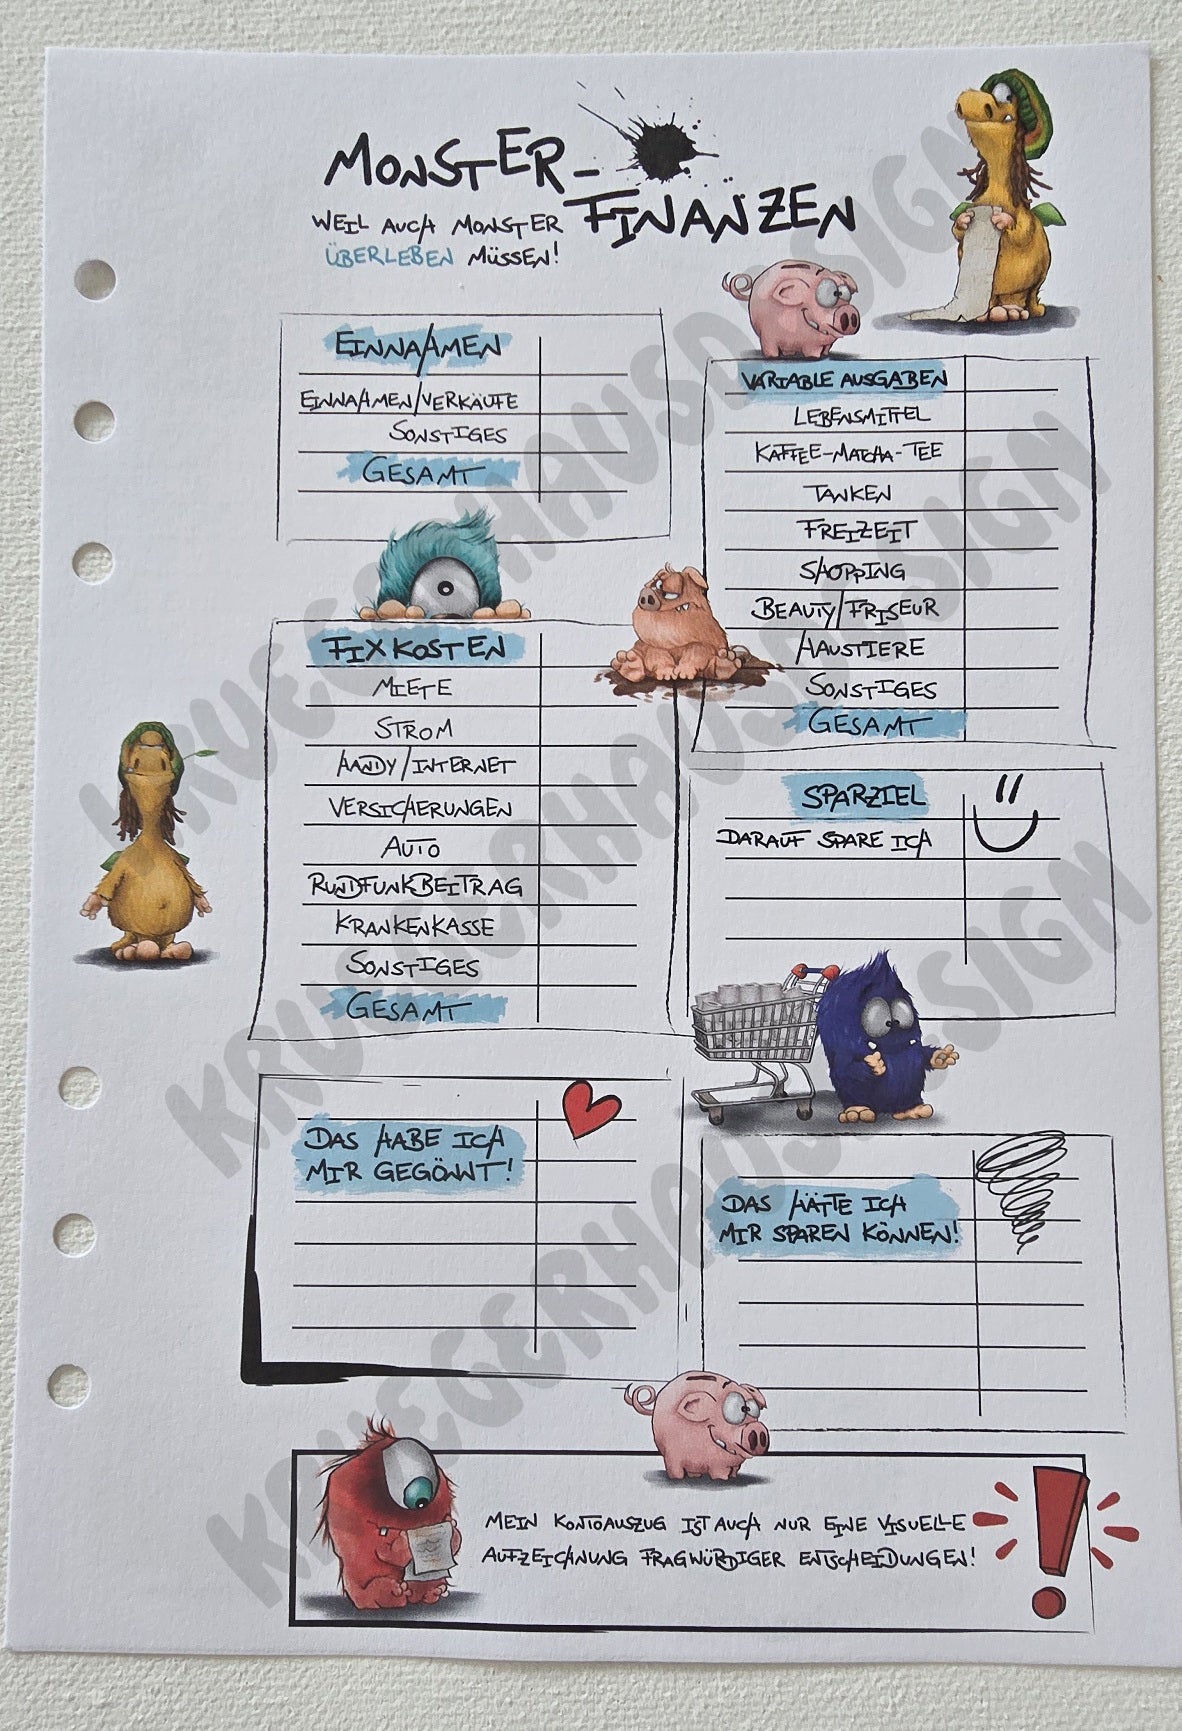 MONSTER-
FINANZEN
WEIL AUCH MONSTER
ÜBERLEBEN MÜSSEN!
EINNAHMEN
EINNAHMEN/VERKÄUFE
SONSTIGES
GESAMT
FIXKOSTEN
MIETE
STROM
HANDY/INTERNET
VERSICHERUNGEN
AUTO
RUNDFUNKBEITRAG
KRANKENKASSE
SONSTIGES
GESAMT
VARIABLE AUSGABEN
LEBENSMITTEL
KAFFEE-MATCHA-TEE
TANKEN
FREIZEIT
SHOPPING
BEAUTY/FRISEUR
HAUSTIERE
SONSTIGES
GESAMT
SPARZIEL
DARAUF SPARE ICH
DAS HABE ICH
MIR GEGÖNNT!
DAS HÄTTE ICH
MIR SPAREN KÖNNEN!
MEIN KONTOAUSZUG IST AUCH NUR EINE VISUELLE
AUFZEICHNUNG FRAGWÜRDIGER ENTSCHEIDUNGEN!
KRUEGERHAUSDESIGN
KRUEGERHAUSDESIGN
KRUEGERHAUSDESIGN